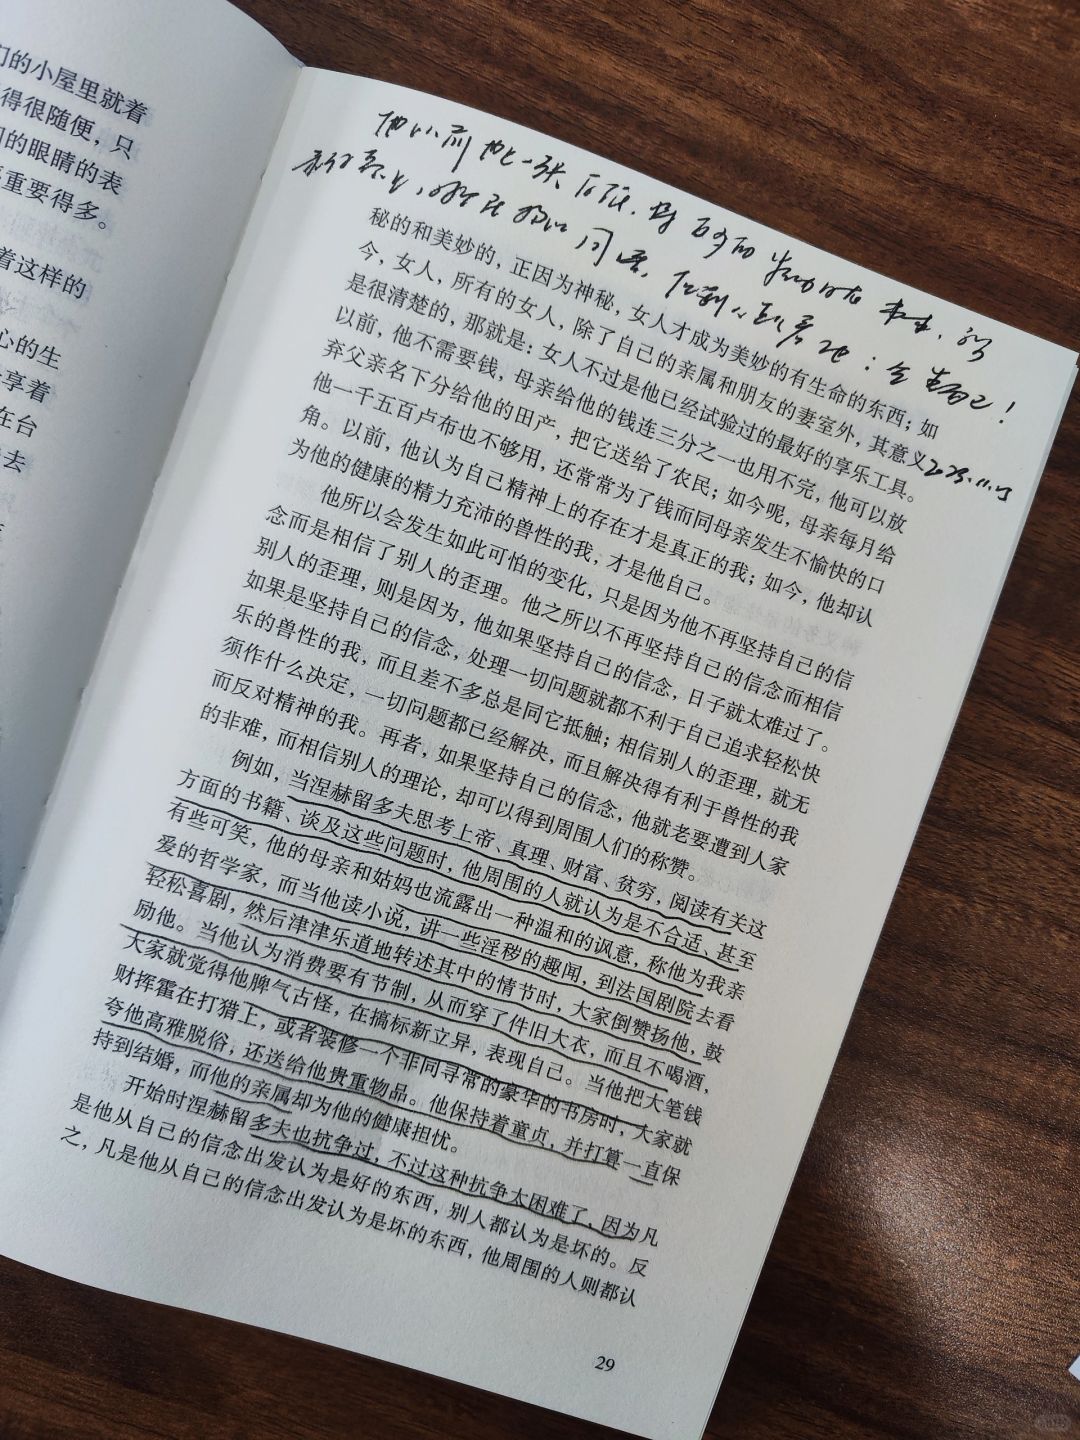 们的小屋里就着
得很随便，只
的眼睛的表
重要得多。
着这样的
心的生
享着
在台
去
他以前
秘的和美妙的，正因为神秘，女人才成为美妙的有生命的东西；如
今，女人，所有的女人，除了自己的亲属和朋友的妻室外，其意义
是很清楚的，那就是：女人不过是他已经试验过的最好的享乐工具。
以前，他不需要钱，母亲给他的钱连三分之一也用不完，他可以放
弃父亲名下分给他的田产，把它送给了农民；如今呢，母亲每月给
他一千五百卢布也不够用，还常常为了钱而同母亲发生不愉快的口
角。以前，他认为自己精神上的存在才是真正的我；如今，他却认
为他的健康的精力充沛的兽性的我，才是他自己。
他所以会发生如此可怕的变化，只是因为他不再坚持自己的信
念而是相信了别人的歪理。他之所以不再坚持自己的信念而相信
别人的歪理，则是因为，他如果坚持自己的信念，日子就太难过了。
如果是坚持自己的信念，处理一切问题就都不利于自己追求轻松快
乐的兽性的我，而且差不多总是同它抵触；相信别人的歪理，就无
须作什么决定，一切问题都已经解决，而且解决得有利于兽性的我
而反对精神的我。再者，如果坚持自己的信念，他就老要遭到人家
的非难，而相信别人的理论，却可以得到周围人们的称赞。
例如，当涅赫留多夫思考上帝、真理、财富、贫穷，阅读有关这
方面的书籍、谈及这些问题时，他周围的人就认为是不合适、甚至
有些可笑，他的母亲和姑妈也流露出一种温和的讽意，称他为我亲
爱的哲学家，而当他读小说，讲一些淫秽的趣闻，到法国剧院去看
轻松喜剧，然后津津乐道地转述其中的情节时，大家倒赞扬他，鼓
励他。当他认为消费要有节制，从而穿了件旧大衣，而且不喝酒，
大家就觉得他脾气古怪，在搞标新立异，表现自己。当他把大笔钱
财挥霍在打猎上，或者装修一个非同寻常的豪华的书房时，大家就
夸他高雅脱俗，还送给他贵重物品。他保持着童贞，并打算一直保
持到结婚，而他的亲属却为他的健康担忧。
开始时涅赫留多夫也抗争过，不过这种抗争太困难了，因为凡
是他从自己的信念出发认为是好的东西，别人都认为是坏的。反
之，凡是他从自己的信念出发认为是坏的东西，他周围的人则都认
29